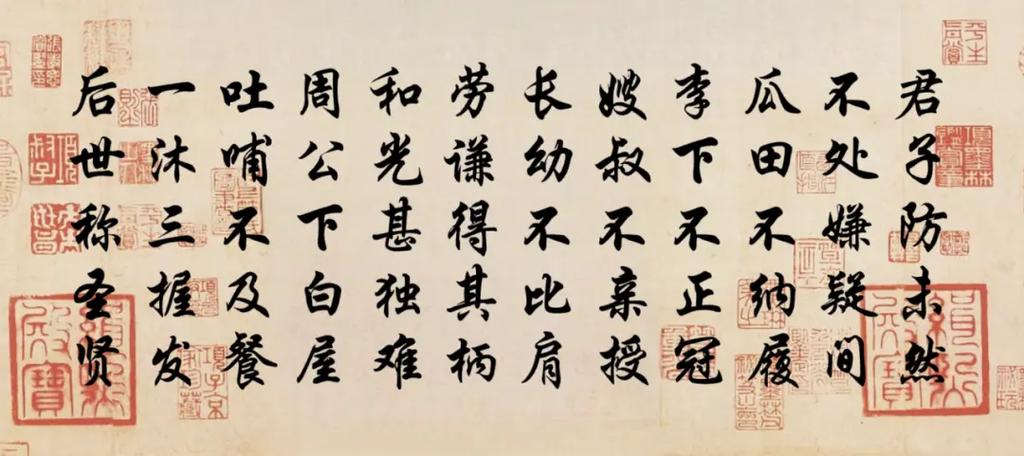 君子防未然
不处嫌疑间
瓜田不纳履
李下不正冠
嫂叔不亲授
长幼不比肩
劳谦得其柄
和光甚独难
周公下白屋
吐哺不及餐
一沐三握发
后世称圣贤